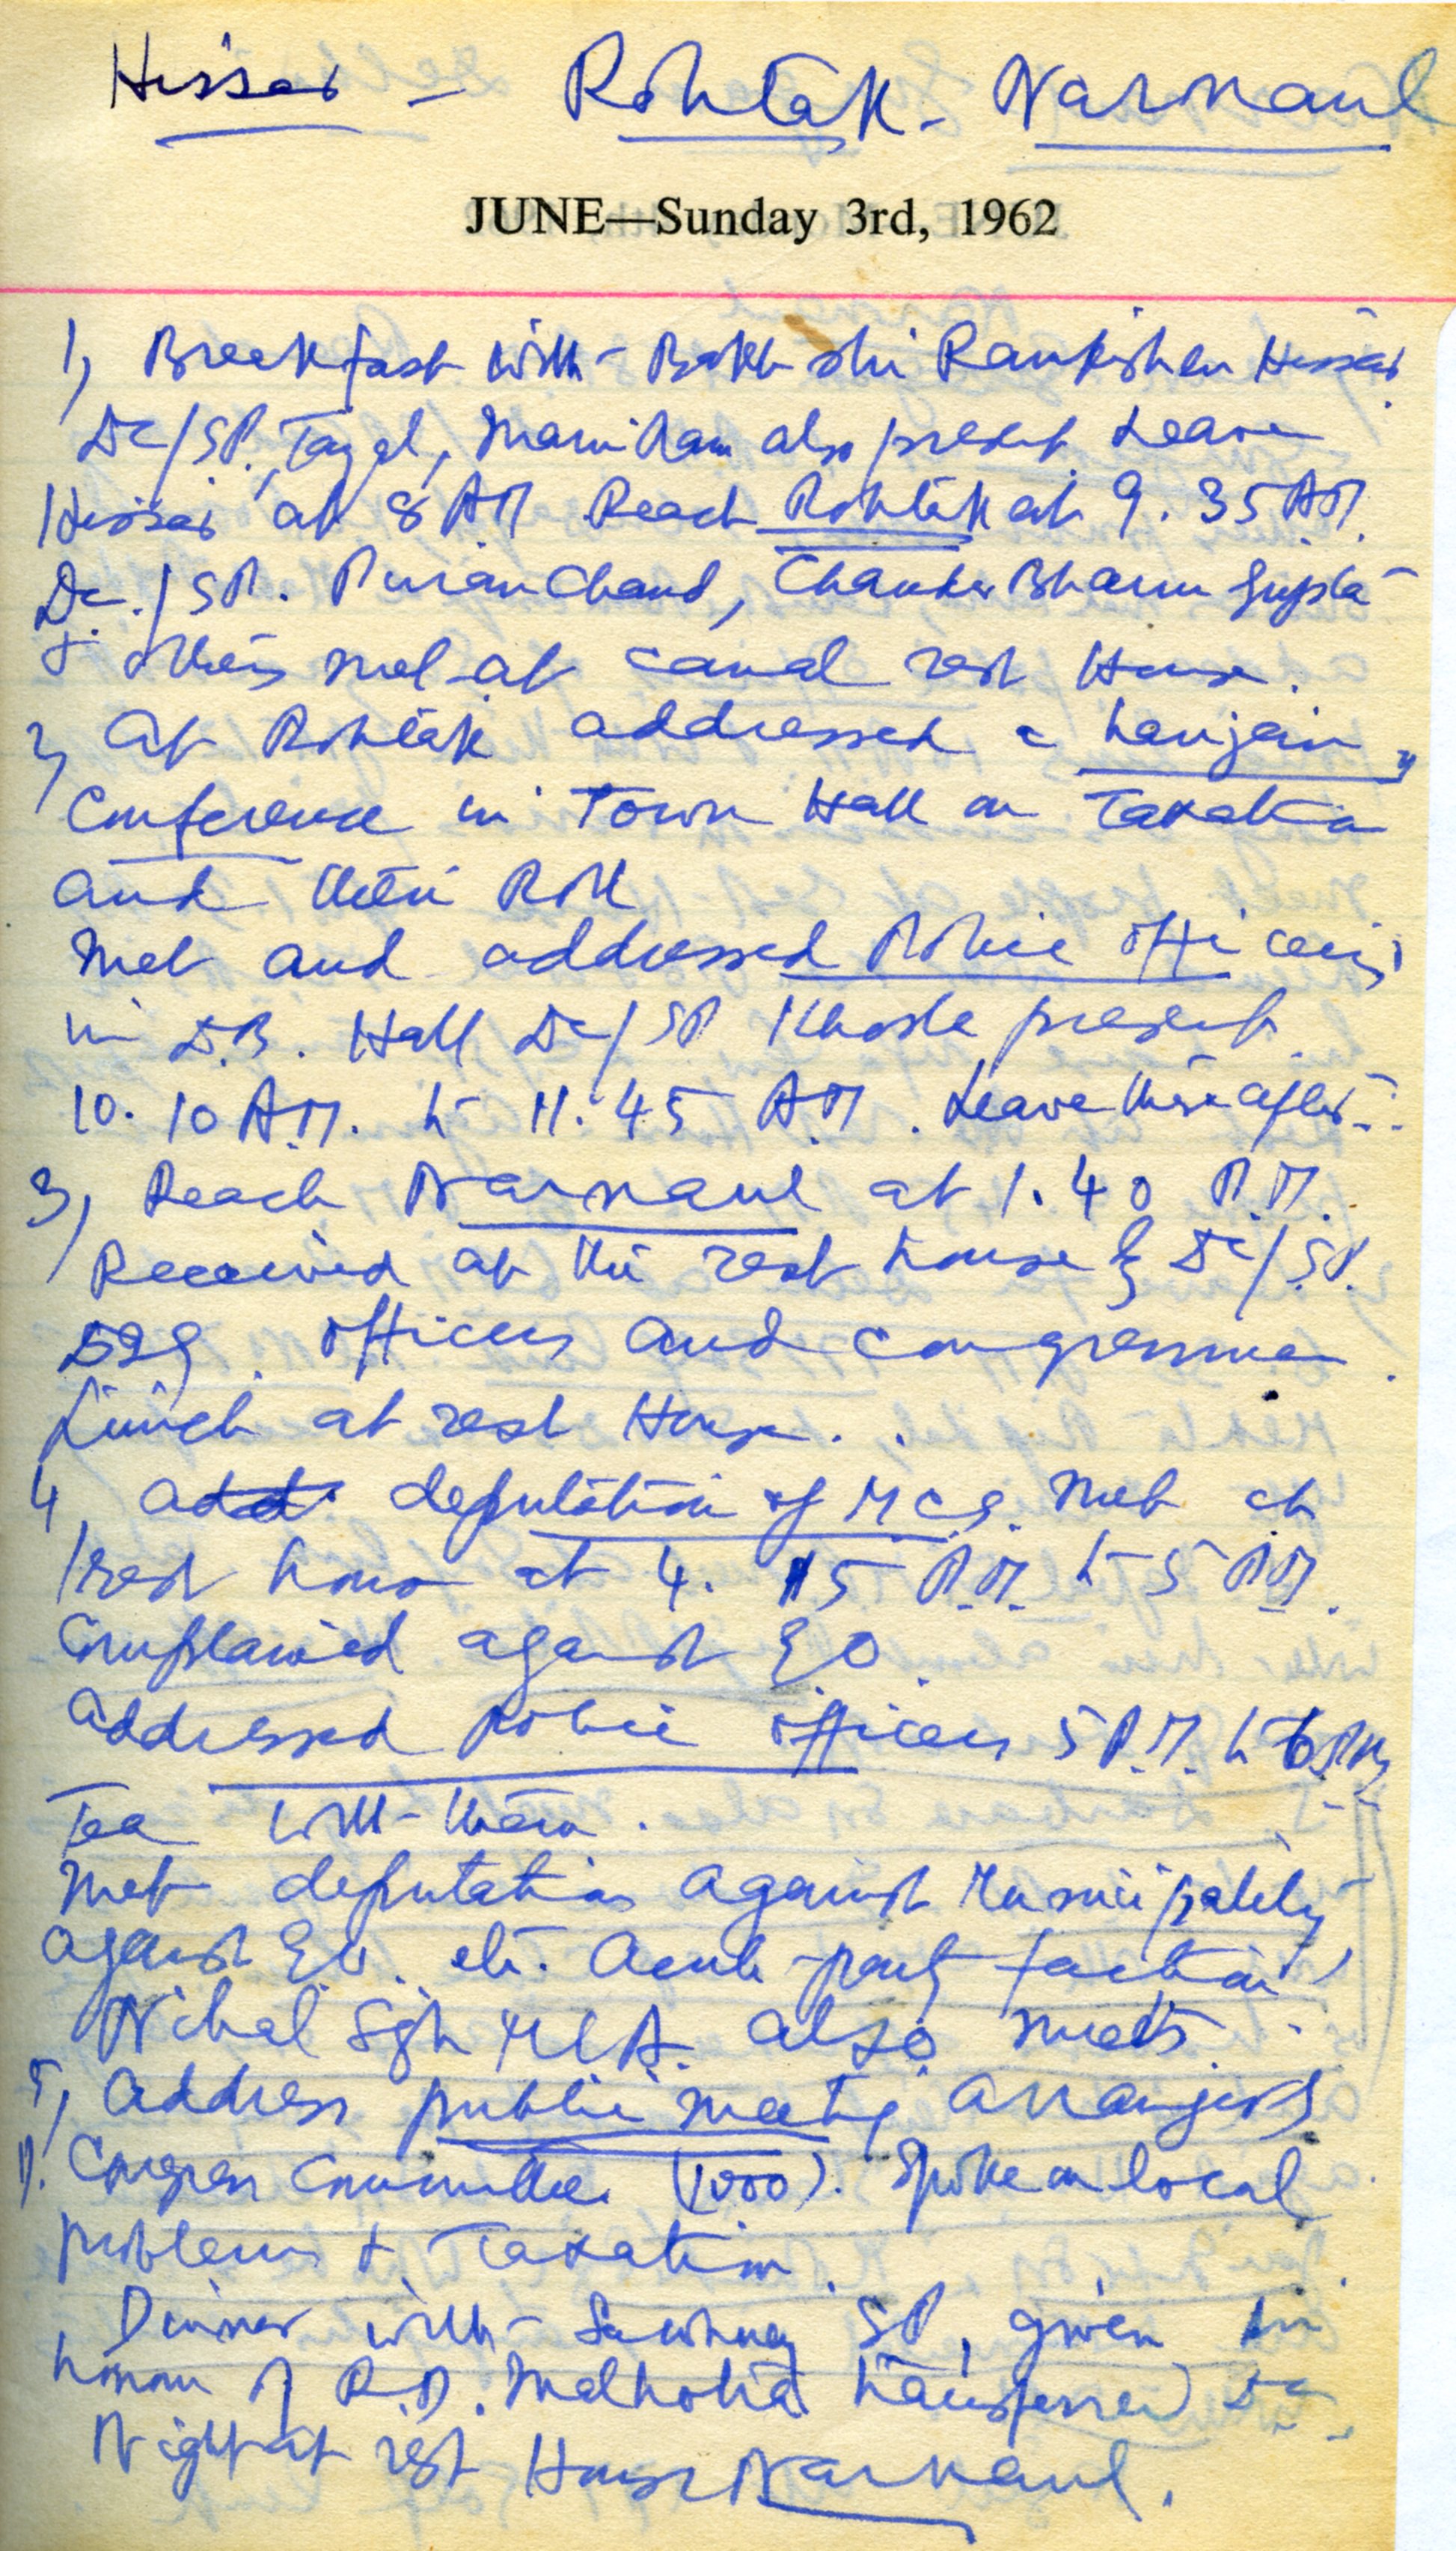 Hissar - Rohtak - Narnaul
JUNE—Sunday 3rd, 1962
1) Breakfast with Bakhshi Ramkishen Hissar
Dc/SP., Tayal, Maniram also present Leave
Hissar at 8 AM Reach Rohtak at 9.35 AM.
Dc./SP. Puran Chand, Chander Bhann Gupta
& others met at canal rest House.
2) At Rohtak addressed a
Conference in Town Hall on Taxation
and their Roll
Met and addressed Police officers
in D.B. Hall Dc/SP Khosla present.
10.10 A.M. to 11.45 A.M. Leave thereafter.
3) Reach Narnaul at 1.40 P.M.
Received at the rest house by Dc/S.P.
DIG. officers and congressmen.
Lunch at rest House.
4, deputation of M Cs. met at
rest house at 4.15 P.M. to 5 P.M.
Complained against EO.
Addressed Police officers 5 P.M. to 6 P.M.
Tea with them.
Met deputation against Municipality
against EO. etc. Acute party faction
Nihal Sgh MLA. also meets.
5, Address public meeting arranged by
D. Congress Committee (1000). Spoke on local
problems & Taxation.
Dinner with Sawhney SP, given in
honour of R.D. Malhotra transferred Dc.
Night at rest House Narnaul.